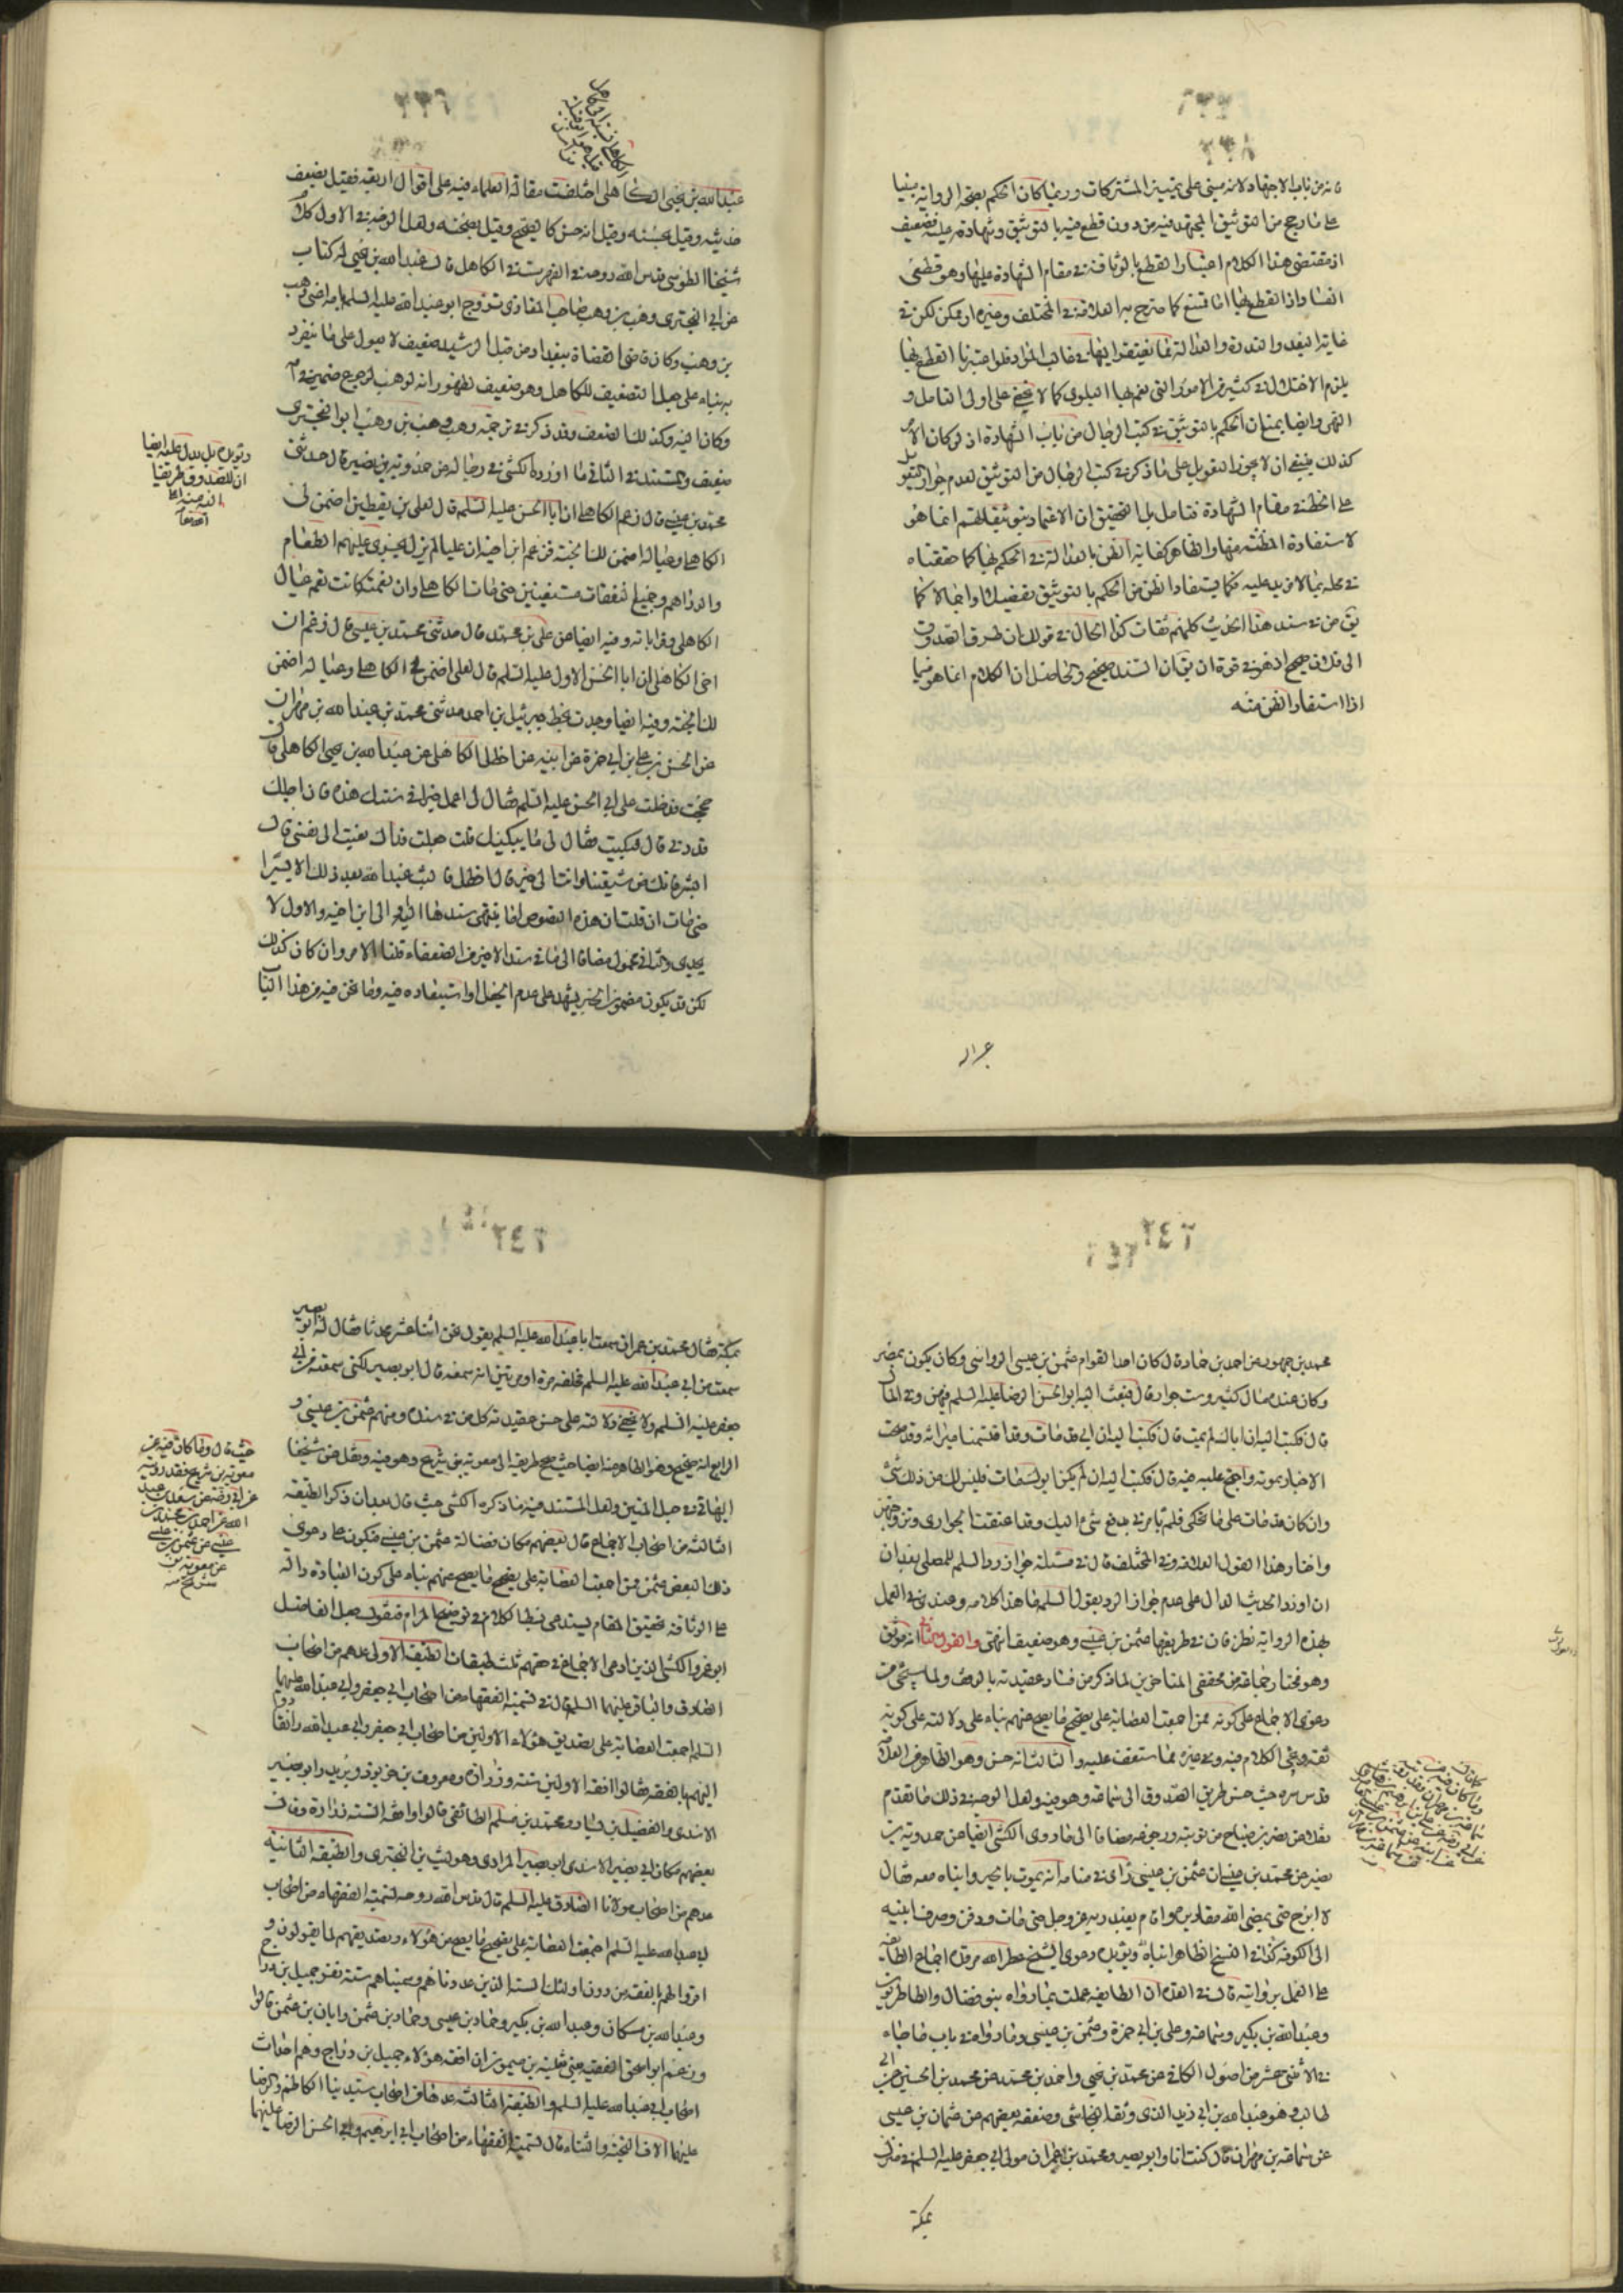 فانه من باب الاجتهاد لانه مبنى على تمييز المشتركات وربما كان الحكم بصحة الرواية مبنيا
على ما رجح من التوثيق المجتهد فيه من دون قطع فيه بالتوثيق وشهادة عليه فضعيف
اذ مقتضى هذا الكلام اعتبار القطع بالوثاقة في مقام الشهادة عليها وهو قطعى
الفساد اذ القطع بها اما ممتنع كما صرح به العلامة في المختلف وغيره او ممكن لكن في
غاية البعد والندرة والعدالة مما يفتقر اليها في غالب المواد فلو اعتبرنا القطع بها
يلزم الاختلال في كثير من الامور التى تعم بها البلوى كما لا يخفى على اولى التامل و
النهى وايضا يمتنع ان الحكم بالتوثيق في كتب الرجال من باب الشهادة اذ لو كان الامر
كذلك فينبغى ان لا يجوز التعويل على ما ذكر في كتب الرجال من التوثيق لعدم جواز التعويل
على الخط في مقام الشهادة فتامل بل التحقيق ان الاعتماد بتوثيقاتهم انما هو
لاستفادة المظنة منها والظاهر كفاية الظن بالعدالة في الحكم بها كما حققناه
في محله بما لا مزيد عليه فكما يستفاد الظن من الحكم بالتوثيق تفصيلا واجمالا كما
يق من في سند هذا الحديث كلهم ثقات كذا الحال في قولك ان طريق الصدوق
الى فلان صحيح اذ هو في قوة ان يق ان السند صحيح والحاصل ان الكلام انما هو فيما
اذا استفاد الظن منه
عبد الله
عبد الله بن يحيى الكاهلى اختلفت مقالة العلماء فيه على اقوال اربعة فقيل بضعف
حديثه وقيل بحسنه وقيل انه حسن كالصحيح وقيل بصحته ولعل الوجه في الاول كلام
شيخنا الطوسى قدس الله روحه في الفهرست في الكاهلى قال عبد الله بن يحيى له كتاب
عن ابى البخترى وهب بن وهب صاحب المغازى تزوج ابو عبد الله عليه السلم بامه اعنى وهب
بن وهب وكان قاضى القضاة ببغداد من قبل الرشيد ضعيف لا يعول على ما يتفرد
به بناء على جعل التضعيف للكاهلى وهو ضعيف لظهور انه لوهب لرجوع ضميرى امه
وكان اليه وكذلك الضعف وقد ذكر في ترجمة وهب وهب بن وهب ابو البخترى
ضعيف والمستند في الثانى ما اورده الكشى في رجاله عن حمدويه بن نصير قال حدثنى
محمد بن عيسى قال زعم الكاهلى ان ابا الحسن عليه السلم قال لعلى بن يقطين اضمن لى
الكاهلى وعياله اضمن لك الجنة فزعم ابن اخيه ان عليا لم يزل يجرى عليهم الطعام
والدراهم وجميع النفقات مستغنين حتى مات الكاهلى وان نعمته كانت تعم عيال
الكاهلى وقراباته وفيه ايضا عن على بن محمد قال حدثنى محمد بن عيسى قال زعم ابن
اخى الكاهلى ان ابا الحسن الاول عليه السلم قال لعلى اضمن لى الكاهلى وعياله اضمن
لك الجنة وفيه ايضا وجدت بخط جبرئيل بن احمد حدثنى محمد بن عبد الله بن مهران
عن الحسن بن على بن ابى حمزة عن ابيه عن اخطل الكاهلى عن عبد الله بن يحيى الكاهلى قال
حججت فدخلت على ابى الحسن عليه السلم فقال لى اعمل خيرا في سنتك هذه فان اجلك
قد دنى قال فبكيت فقال لى ما يبكيك قلت جعلت فداك نعيت الى نفسى قال
ابشر فانك من شيعتنا وانت الى خير قال اخطل فما لبث عبد الله بعد ذلك الا يسيرا
حتى مات ان قلت ان هذه النصوص انما ينتهى سندها اليه او الى ابن اخيه والاول لا
يجدى والثانى مجهول مضافا الى ما في سند الاخير من الضعفاء قلنا الامر وان كان كذلك
لكن قد يكون مضمون الخبر يشهد على عدم الجعل او استبعاده فيه وما نحن فيه من هذا الباب
ويؤيده بل يدل عليه ايضا
ان للصدوق طريقا
اليه
محمد بن جمهور عن احمد بن حماد قال كان احد القوام عثمن بن عيسى الرواسى وكان يكون بمصر
وكان عنده مال كثير وست جوار قال فبعث اليه ابو الحسن الرضا عليه السلم فيهن وفى المال
قال فكتب اليه ان اباك لم يمت قال فكتب اليه ان ابى قد مات وقد اقتسمنا ميراثه وقد صحت
الاخبار بموته واحتج عليه فيه قال فكتب اليه ان لم يكن ابوك مات فليس لك من ذلك شئ
وان كان قد مات على ما تحكى فلم يامرنى بدفع شئ اليك وقد اعتقت الجوارى وتزوجتهن
واختار هذا القول العلامة في المختلف قال في مسئلة جواز رد السلم للمصلى بعد ان
ان اورد الحديث الدال على عدم جواز الرد بقول السلم ما هذا كلامه وعندى في العمل
بهذه الرواية نظر فان في طريقها عثمن بن عيسى وهو ضعيف انتهى والقول الثانى انه موثق
وهو مختار جماعة من محققى المتاخرين لما ذكر من فساد عقيدته بالوقف ولما سيجئ من
دعوى الاجماع على كونه ممن اجمعت العصابة على تصحيح ما يصح عنهم بناء على دلالته على كونه
ثقة ويجئ الكلام فيه وفى غيره مما ستقف عليه والثالث انه حسن وهو الظاهر من العلامة
قدس سره حيث حسن طريق الصدوق الى سماعة وهو فيه ولعل الوجه في ذلك ما تقدم
نقله عن نصر بن صباح من توبته ورجوعه مضافا الى ما روى الكشى ايضا عن حمدويه بن
نصير عن محمد بن عيسى ان عثمن بن عيسى راى في منامه انه يموت بالحير وابناه معه فقال
لا ابرح حتى يمضى الله مقاديره واقام يعبد ربه عز وجل حتى مات ودفن وصرف ابنيه
الى الكوفة كذا في النسخ الظاهر ابناه ويؤيده دعوى الشيخ عطر الله مرقده اجماع الطائفة
على العمل بروايته قال في العدة ان الطائفة عملت بما رواه بنو فضال والطاطريون
وعبد الله بن بكير وسماعة وعلى بن ابى حمزة وعثمن بن عيسى وما رواه في باب ما جاء
في الاثنى عشر من اصول الكافى عن محمد بن يحيى واحمد بن محمد عن محمد بن الحسين عن ابى
طالب وهو عبد الله بن ابى زيد الذى وثقه النجاشى وضعفه بعضهم عن عثمان بن عيسى
عن سماعة بن مهران قال كنت انا وابو بصير ومحمد بن عمران مولى ابى جعفر عليه السلم في منزل
بمكة
بمكة فقال محمد بن عمران سمعت ابا عبد الله عليه السلم يقول نحن اثنا عشر محدثا فقال له ابو بصير
سمعت من ابى عبد الله عليه السلم فحلفه مرة او مرتين انه سمعه قال ابو بصير لكنى سمعته من ابى
جعفر عليه السلم ولا يخفى دلالته على حسن عقيدة كل من في سنده ومنهم عثمن بن عيسى و
الرابع انه صحيح وهو الظاهر منه ايضا حيث صحح طريقه الى معوية بن شريح وهو فيه ونقل عن شيخنا
البهائى في حبل المتين ولعل المستند فيه ما ذكره الكشى حيث قال بعد ان ذكر الطبقة
الثالثة من اصحاب الاجماع قال بعضهم مكان فضالة عثمن بن عيسى فيكون على دعوى
ذلك البعض عثمن ممن اجمعت العصابة على تصحيح ما يصح عنهم بناء على كون العبارة دالة
على الوثاقة تحقيق المقام يستدعى بسط الكلام في توضيح المرام فنقول جعل الفاضل
ابو عمرو الكشى الذين ادعى الاجماع في حقهم ثلث طبقات الطبقة الاولى عدهم من اصحاب
الصادق والباقر عليهما السلم قال في تسمية الفقهاء من اصحاب ابى جعفر وابى عبد الله عليهما
السلم اجمعت العصابة على تصديق هؤلاء الاولين من اصحاب ابى جعفر وابى عبد الله وانقادوا
اليهم بالفقه فقالوا افقه الاولين ستة زرارة ومعروف بن خربوذ وبريد وابو بصير
الاسدى والفضيل بن يسار ومحمد بن مسلم الطائفى قالوا وافقه الستة زرارة وقال
بعضهم مكان ابى بصير الاسدى ابو بصير المرادى وهو ليث بن البخترى والطبقة الثانية
عدهم من اصحاب مولانا الصادق عليه السلم قال قدس الله روحه تسمية الفقهاء من اصحاب
ابى عبد الله عليه السلم اجمعت العصابة على تصحيح ما يصح عن هؤلاء وتصديقهم لما يقولون و
اقروا لهم بالفقه من دون اولئك الستة الذين عددناهم وسميناهم ستة نفر جميل بن دراج
وعبد الله بن مسكان وعبد الله بن بكير وحماد بن عيسى وحماد بن عثمن وابان بن عثمن قالوا
وزعم ابو اسحق الفقيه يعنى ثعلبة بن ميمون ان افقه هؤلاء جميل بن دراج وهم احداث
اصحاب ابى عبد الله عليه السلم والطبقة الثالثة عدها من اصحاب سيدينا الكاظم والرضا
عليهما الاف التحية والثناء قال تسمية الفقهاء من اصحاب ابى ابرهيم وابى الحسن الرضا عليهما
حيث قال وما كان فيه عن
معوية بن شريح فقد رويته
عن ابى رضى عن سعد بن عبد
الله عن احمد بن محمد بن
عيسى عن عثمن بن عيسى
عن معوية بن
شريح